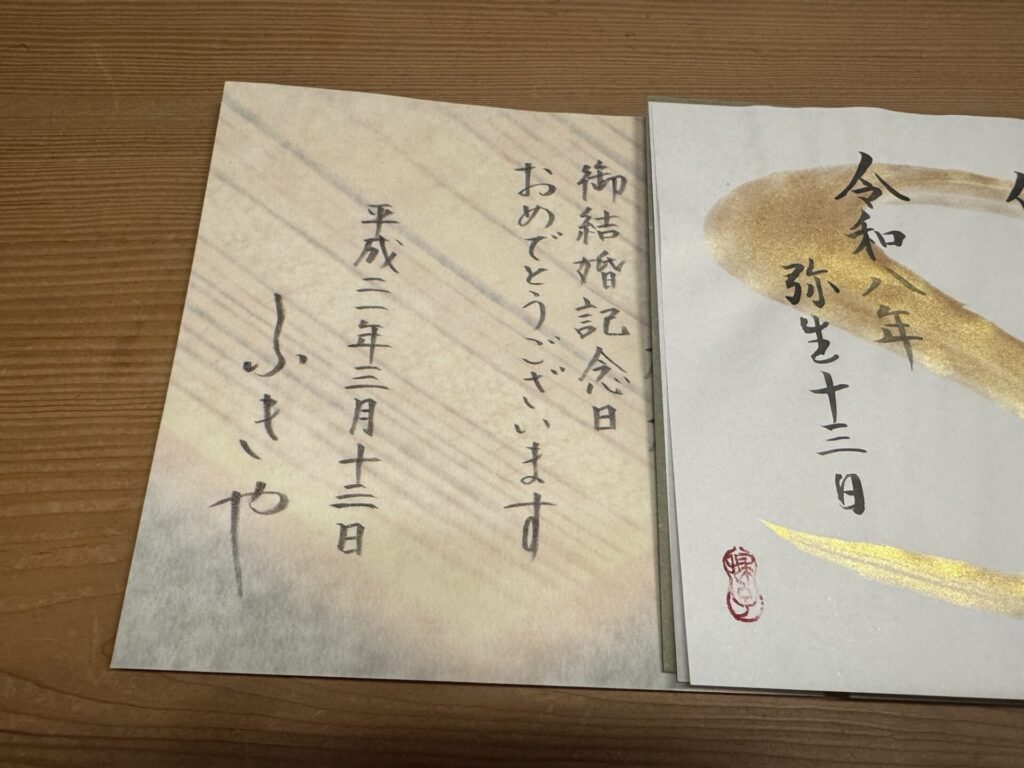 令和八年
弥生十三日
御結婚記念日
おめでとうございます
平成二一年三月十三日
ふきや